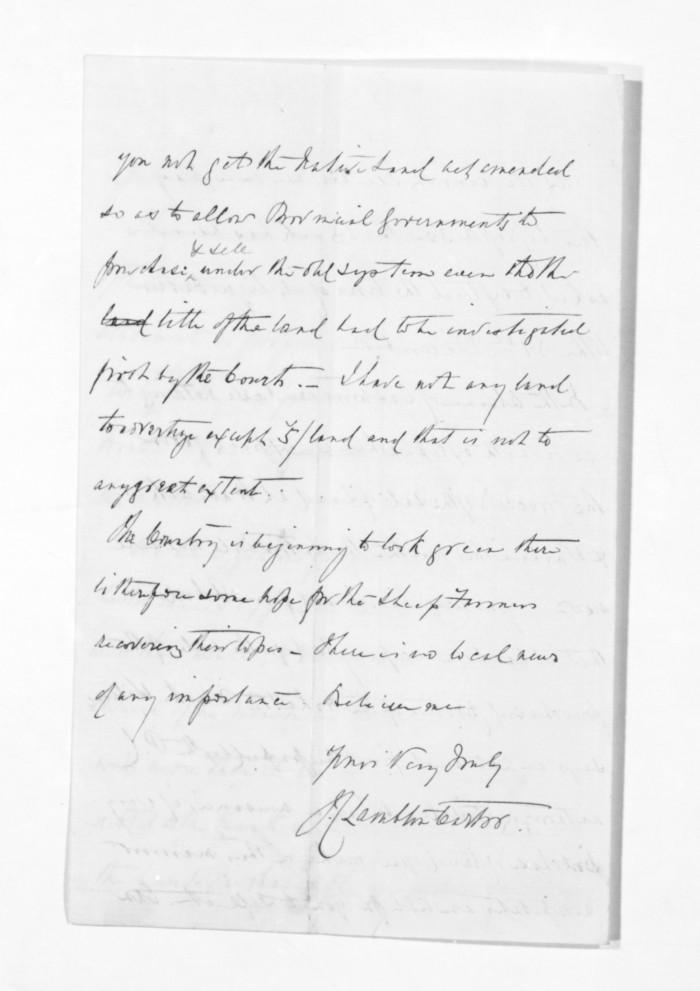 you not get the Native Land act amended
so as to allow Provincial Governments to
& sell
purchase, under the old system even tho the
land title of the land had to be investigated
first by the Courts. — I have not any land
to advertize except 5/ land and that is not to
any great extent.
The Country is beginning to look green there
is therefore some hope for the Sheep Farmers
recovering their losses — There is no local news
of any importance Believe me
Yours Very Truly
G. S. Cooper